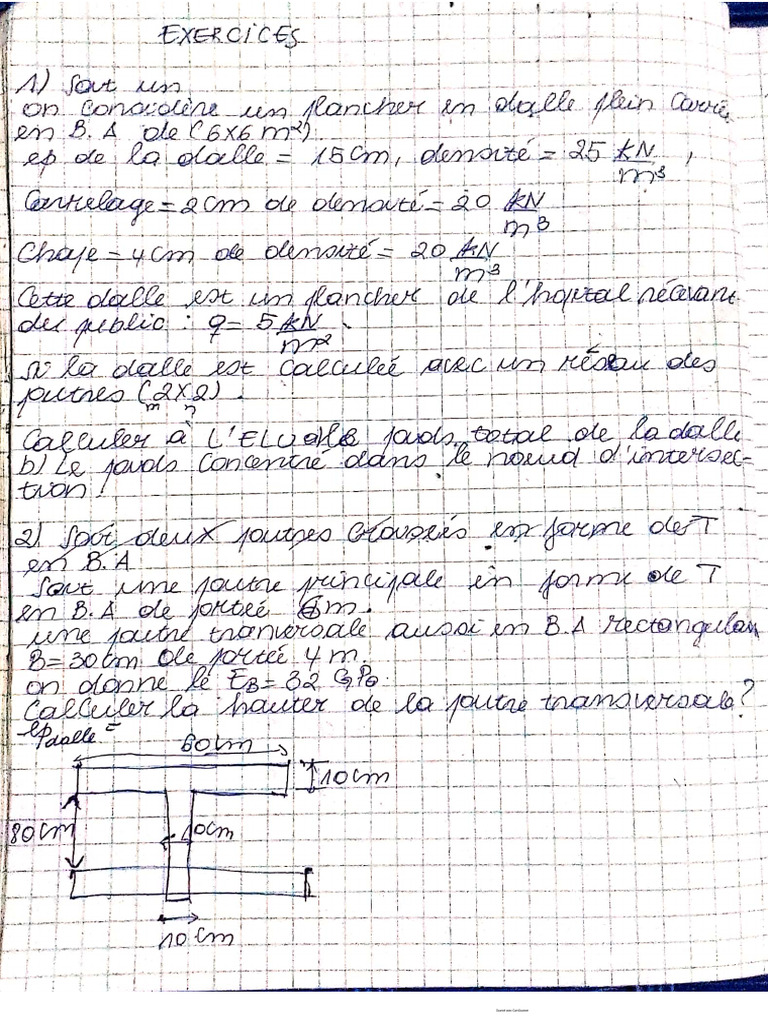 EXERCICES
1) Soit un
on considère un plancher en dalle plein carré,
en B.A de (6x6 m²)
ep de la dalle = 15cm, densité = 25 kN/m³,
Carrelage = 2cm de densité = 20 kN/m³
Chape = 4cm de densité = 20 kN/m³
Cette dalle est un plancher de l'hopital récevant
du public : q = 5 kN/m².
si la dalle est calculée avec un réseau des
poutres (2x2).
m n
Calculer à L'ELU a) le poids total de la dalle
b) Le poids concentré dans le noeud d'intersec-
tion!
2) Soit deux poutres croisées en forme de T
en B.A
Soit une poutre principale en forme de T
en B.A de portée 6m.
une poutre transversale aussi en B.A rectangulaire
B=30cm de portée 4m.
on donne le EB = 32 GPa.
Calculer la hauter de la poutre transversale?
epdalle =
60cm
10cm
80cm
10cm
10cm